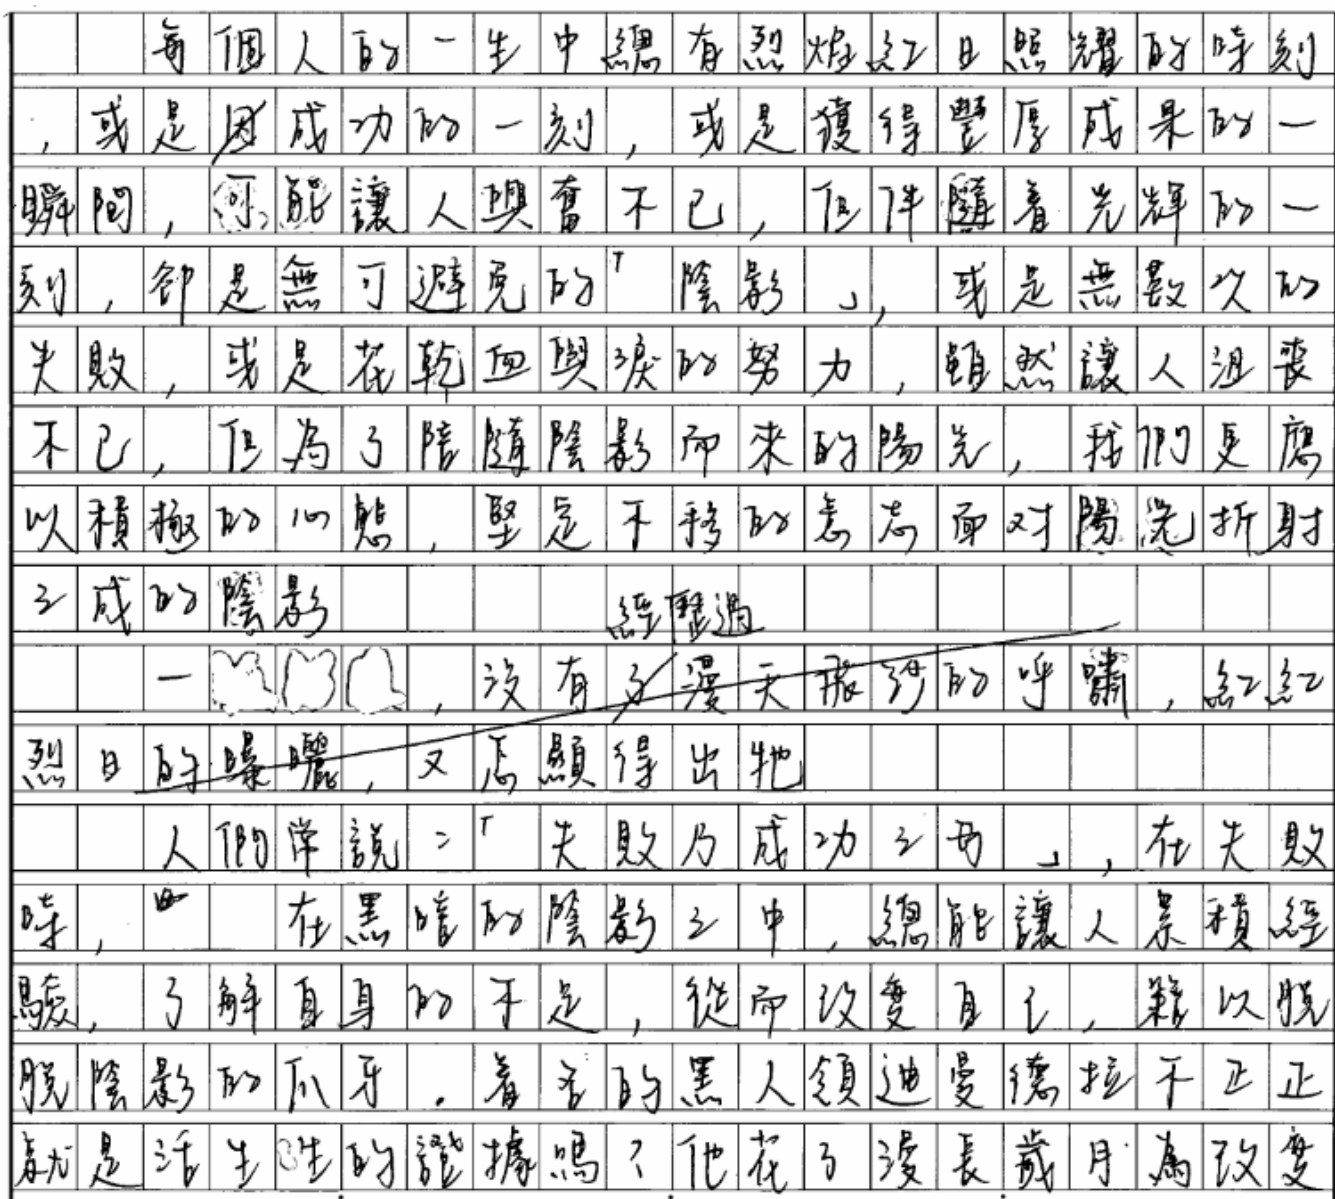 每個人的一生中總有烈焰紅日照耀的時刻
，或是因成功的一刻，或是獲得豐厚成果的一
瞬間，可能讓人興奮不已，但伴隨着光輝的一
刻，卻是無可避免的「陰影」，或是無數次的
失敗，或是花乾血與淚的努力，雖然讓人沮喪
不已，但為了陪隨陰影而來的陽光，我們更應
以積極的心態，堅定不移的意志面对陽光折射
之成的陰影
經歷過
一，沒有了漫天飛沙的呼嘯，紅紅
烈日的曝曬，又怎顯得出牠
人們常說：「失敗乃成功之母」，在失敗
時，在黑暗的陰影之中，總能讓人累積經
驗，了解自身的不足，從而改變自己，藉以脫
脫陰影的爪牙。着名的黑人領迪曼德拉不正正
就是活生生的證據嗎？他花了漫長歲月為改變